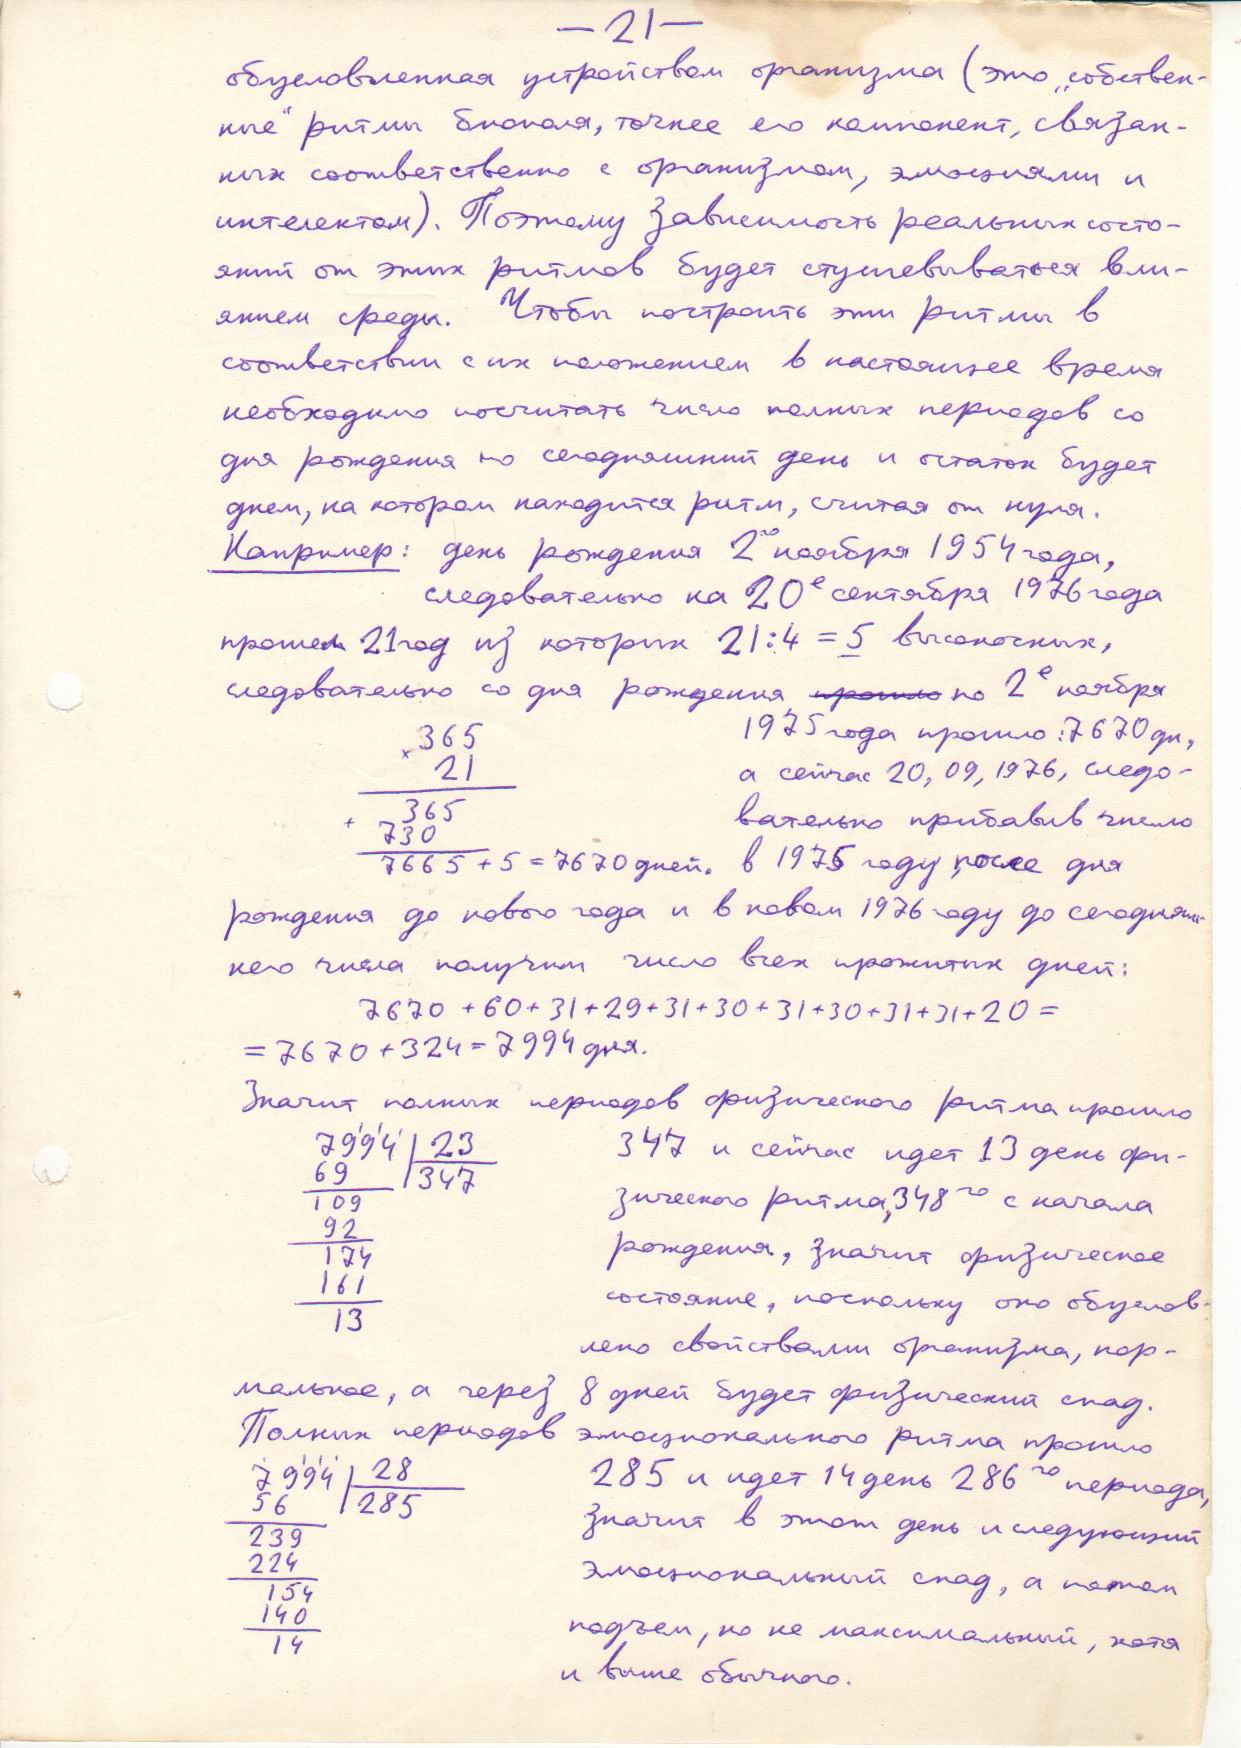 — 21 —
обусловленная устройством организма (это „собствен-
ные" ритмы биополя, точнее его компонент, связан-
ных соответственно с организмом, эмоциями и
интелектом). Поэтому зависимость реальных состо-
яний от этих ритмов будет стушевываться вли-
янием среды. Чтобы построить эти ритмы в
соответствии с их положением в настоящее время
необходимо посчитать число полных периодов со
дня рождения по сегодняшний день и остаток будет
днем, на котором находится ритм, считая от нуля.
Например: день рождения 2го ноября 1954 года,
следовательно на 20е сентября 1976 года
прошел 21 год из которых 21:4 = 5 высокосных,
следовательно со дня рождения прошло по 2е ноября
365 1975 года прошло: 7670 дн,
× 21 а сейчас 20, 09, 1976, следо-
365 вательно прибавив число
+ 730
7665 + 5 = 7670 дней. в 1975 году после дня
рождения до нового года и в новом 1976 году до сегодняш-
него числа получим число всех прожитых дней:
7670 + 60 + 31 + 29 + 31 + 30 + 31 + 30 + 31 + 31 + 20 =
= 7670 + 324 = 7994 дня.
Значит полных периодов физического ритма прошло
7994 23 347 и сейчас идет 13 день фи-
69 347
109 зического ритма, 348го с начала
92
174 рождения, значит физическое
161
13 состояние, поскольку оно обуслов-
лено свойствами организма, нор-
мальное, а через 8 дней будет физический спад.
Полных периодов эмоционального ритма прошло
7994 28 285 и идет 14 день 286го периода,
56 285
239 значит в этот день и следующий
224
154 эмоциональный спад, а потом
140
14 подъем, но не максимальный, хотя
и выше обычного.